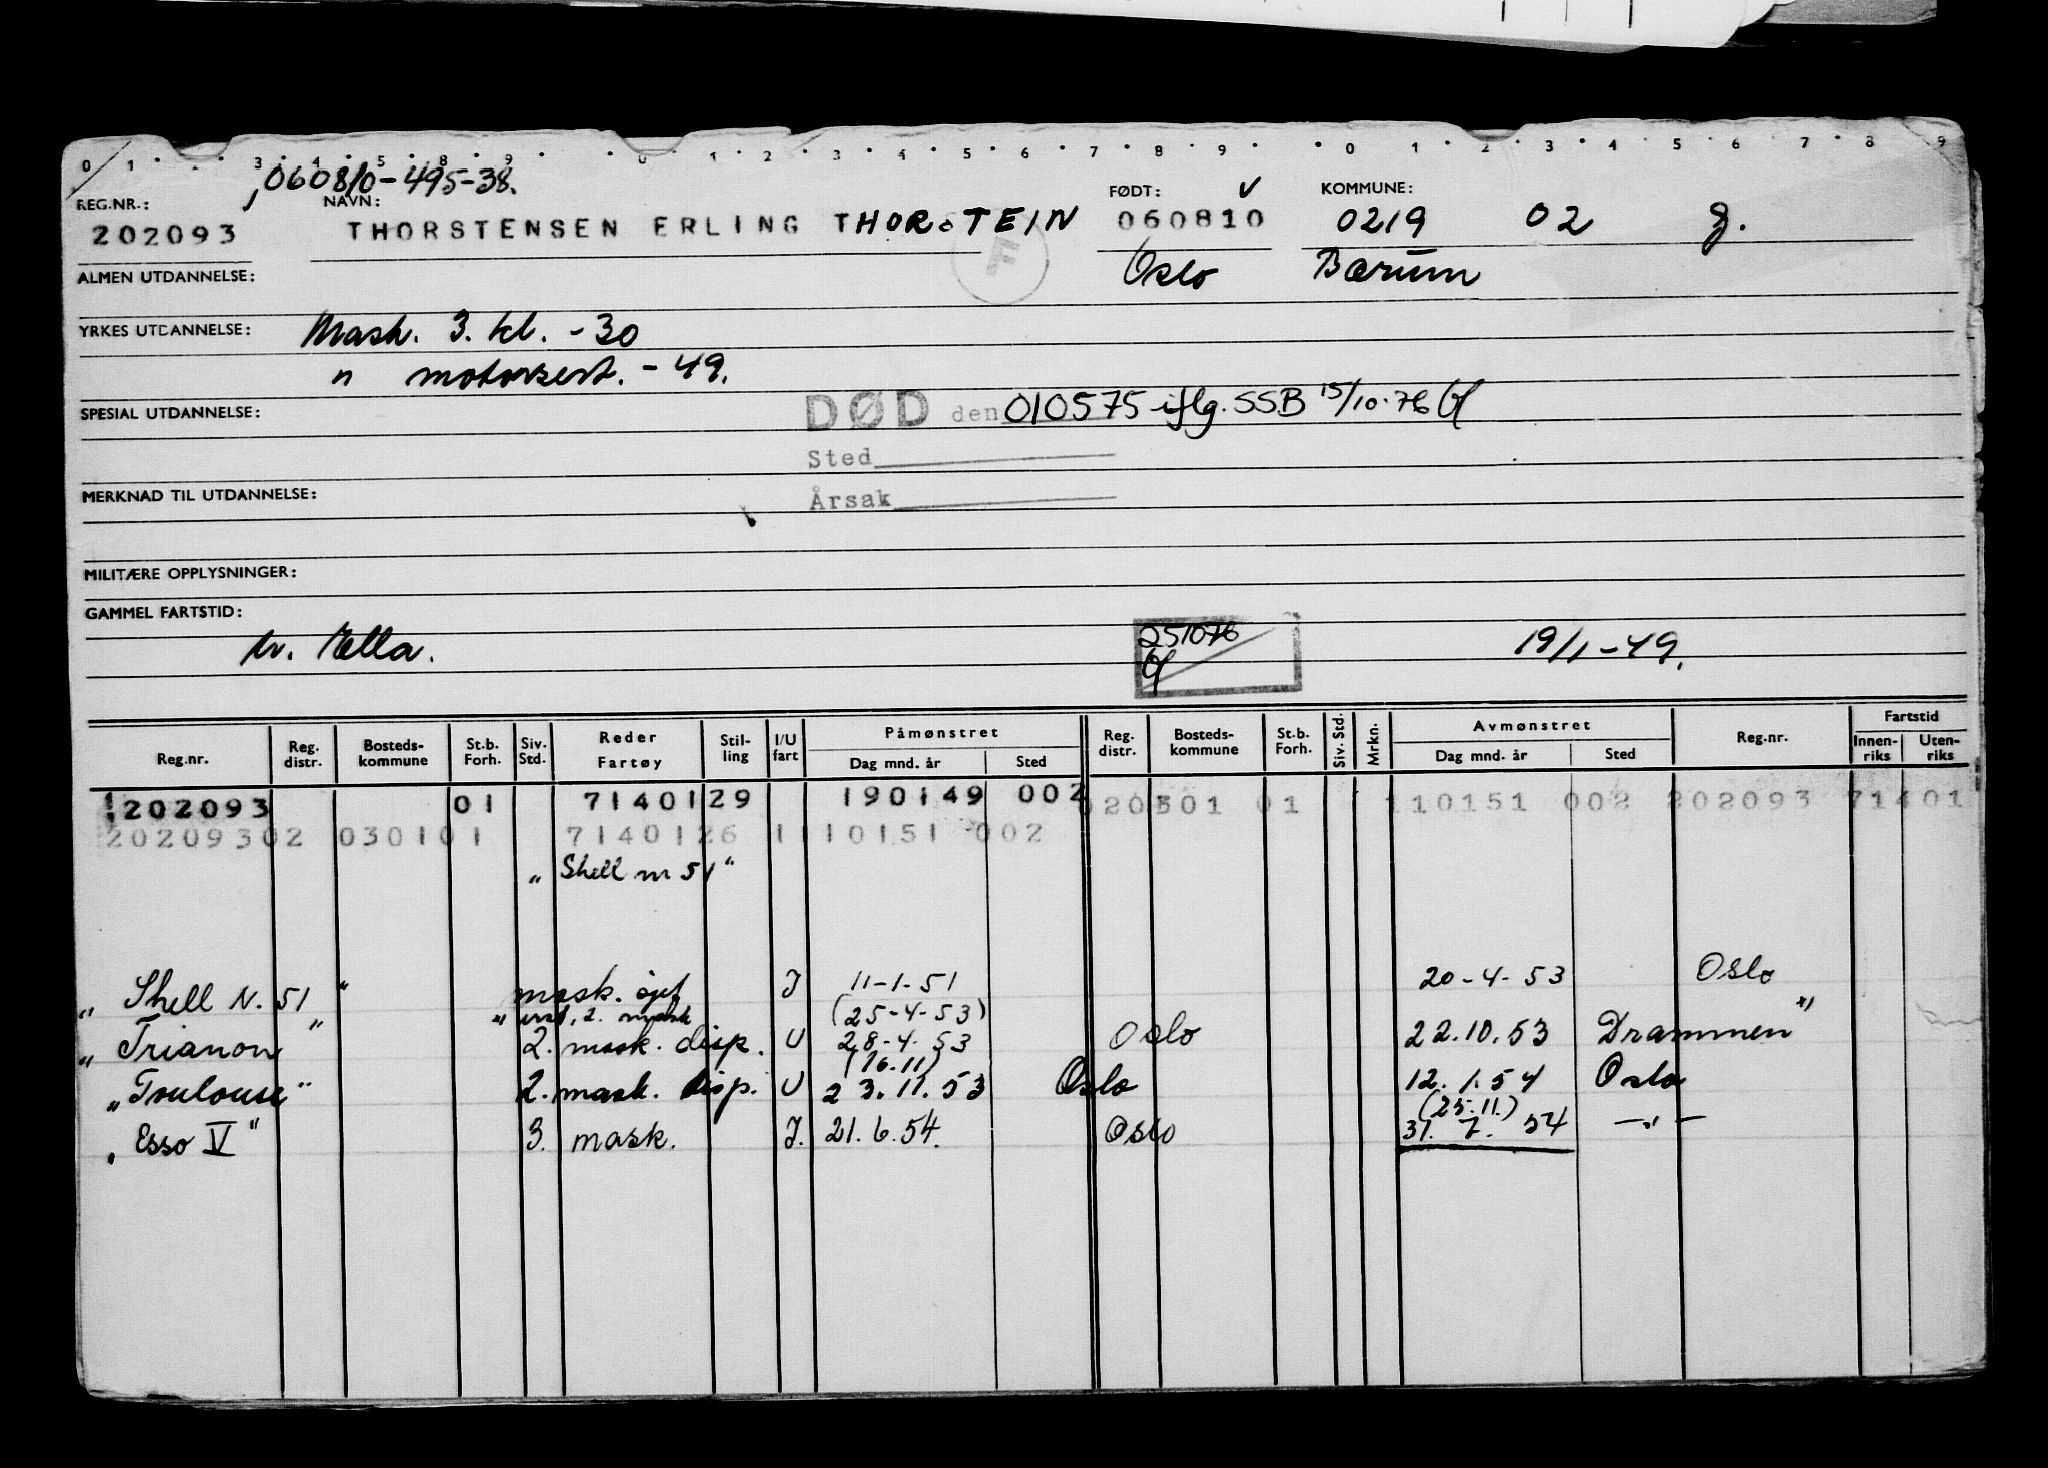 0 1 . . 3 . 4 . 5 . 8 . 9 . . 0 . 1 . 2 . 3 . 4 . 5 . 6 . 7 . 8 . 9 . . 0 . 1 . 2 . 3 . 4 . 5 . 6 . 7 . 8 . 9
060810-495-38.
REG.NR.: NAVN: FØDT: V KOMMUNE:
202093 THORSTENSEN ERLING THORSTEIN 060810 0219 02 g.
Oslo Bærum
ALMEN UTDANNELSE:
YRKES UTDANNELSE: Mask. 3. kl. -30
" motorsert. -49.
SPESIAL UTDANNELSE: DØD den 010575 iflg. SSB 15/10-76
Sted
MERKNAD TIL UTDANNELSE: Årsak
MILITÆRE OPPLYSNINGER:
GAMMEL FARTSTID:
Ella. 251076 19/1-49.
Reg.nr. Reg. distr. Bosteds-kommune St.b. Forh. Siv. Std. Reder Fartøy Stil-ling I/U fart Påmønstret Dag mnd. år Sted Reg. distr. Bosteds-kommune St.b. Forh. Siv. Std. Mrkn. Avmønstret Dag mnd. år Sted Reg.nr. Fartstid Innen-riks Uten-riks
202093 01 7140129 190149 002 020301 01 110151 002 202093 71401
20209302 030101 7140126 1110151 002
"Shell nr 51"
"Shell N. 51" mask. sjef J 11-1-51 20-4-53 Oslo
2. mask (25-4-53)
"Trianon" 2. mask. disp. U 28-4-53 Oslo 22.10.53 Drammen "
(16.11)
"Toulouse" 2. mask. disp. U 23.11.53 Oslo 12.1.54 Oslo
(25.11.)
"Esso V" 3. mask. J. 21.6.54. Oslo 31. 7. 54 —"—